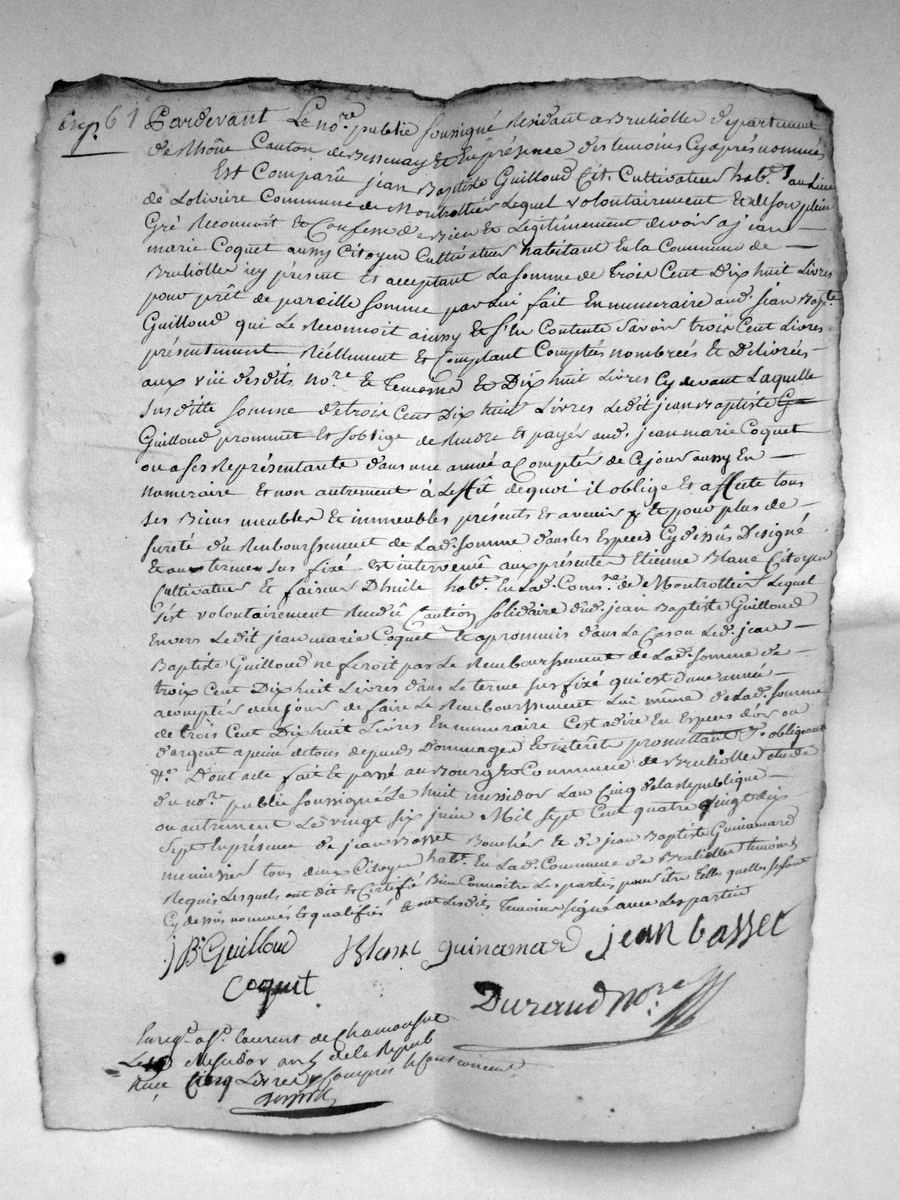 61 Pardevant Le no.re public soussigné Résidant a Brulioller Departement
de Rhône Canton de Bessenay et En présence des temoins Cy après nommés
Est Comparû jean Baptiste Guilloud Cit. Cultivateur hab.t au Lieu
de Lolivière Commune de Montrottier Lequel volontairement et de son plein
Gré Reconnoit et Confesse de Bien et Legitimement devoir a jean
marie Coquet aussy Citoyen Cultivateur habitant En la Commune de
Brulioller icy présent et acceptant La somme de trois Cent Dix huit Livres
pour prêt de pareille somme par Lui fait En numeraire aud. jean Bap.te
Guilloud qui Le Reconnoit ainssy et s'En Contente Savoir trois Cent Livres
présentement Réellement et Comptant Comptées nombreés et Délivrées
aux vüe desdits no.re et temoins et Dix huit Livres Cy devant Laquelle
susditte somme de trois Cent Dix huit Livres Ledit jean Baptiste G
Guilloud prommet et soblige de Rendre et payér aud. jean marie Coquet
ou a ses Représentants dans une année a Comptér de Ce jour aussy En
numeraire et non autrement à Leffêt de quoi il oblige et affecte tous
ses Biens meubles et immeubles présents et avenir et pour plus de
sureté du Remboursement de Lad. somme dans les Especes Cy dessûs Designé
et au terme sus fixé est intervenû aux présentes Etienne Blanc Citoyen
Cultivateur et faiseur Dhuile hab.t En Lad. Com. de Montrottier Lequel
s'est volontairement Rendû Caution solidaire dud. jean Baptiste Guilloud
Envers Ledit jean marie Coquet et a prommis dans Le Cas ou Led. jean
Baptiste Guilloud ne feroit pas Le Remboursement de Lad. somme de
troix Cent Dix huit Livres dans Le terme sus fixé qui est d'une année
a compter de ce jour de faire Le Remboursement Lui même de Lad. somme
de trois Cent Dix huit Livres En numeraire C'est a dire En Especes d'or ou
d'argent a peine de tous depends Dommages et interêts promettant obligeant
&.a Dont acte fait et passé au Bourg et Commune de Brulioller etude
du no.re public soussigné Le huit messidor Lan Cinq de la République
ou autrement Le vingt six juin Mil sept Cent quatre vingt dix
sept En présence de jean Basset Boucher et de jean Baptiste Guinamard
menuisier tous deux Citoyen hab.t En Lad. Commune de Brulioller temoins
Requis Lesquels ont dit et Certifié Bien Connoitre Les parties pour être telle quelles se sont
Cy dessûs nommés et qualifiés et ont Lesdits temoins signé avec Les parties
j B.te Guilloud Blanc guinamard jean basset
Coquet
Durand no.re
Enreg.é a S.t Laurent de Chamousset
Le Messidor an 5 de la Repub
Reçu Cinq Livres y Compris